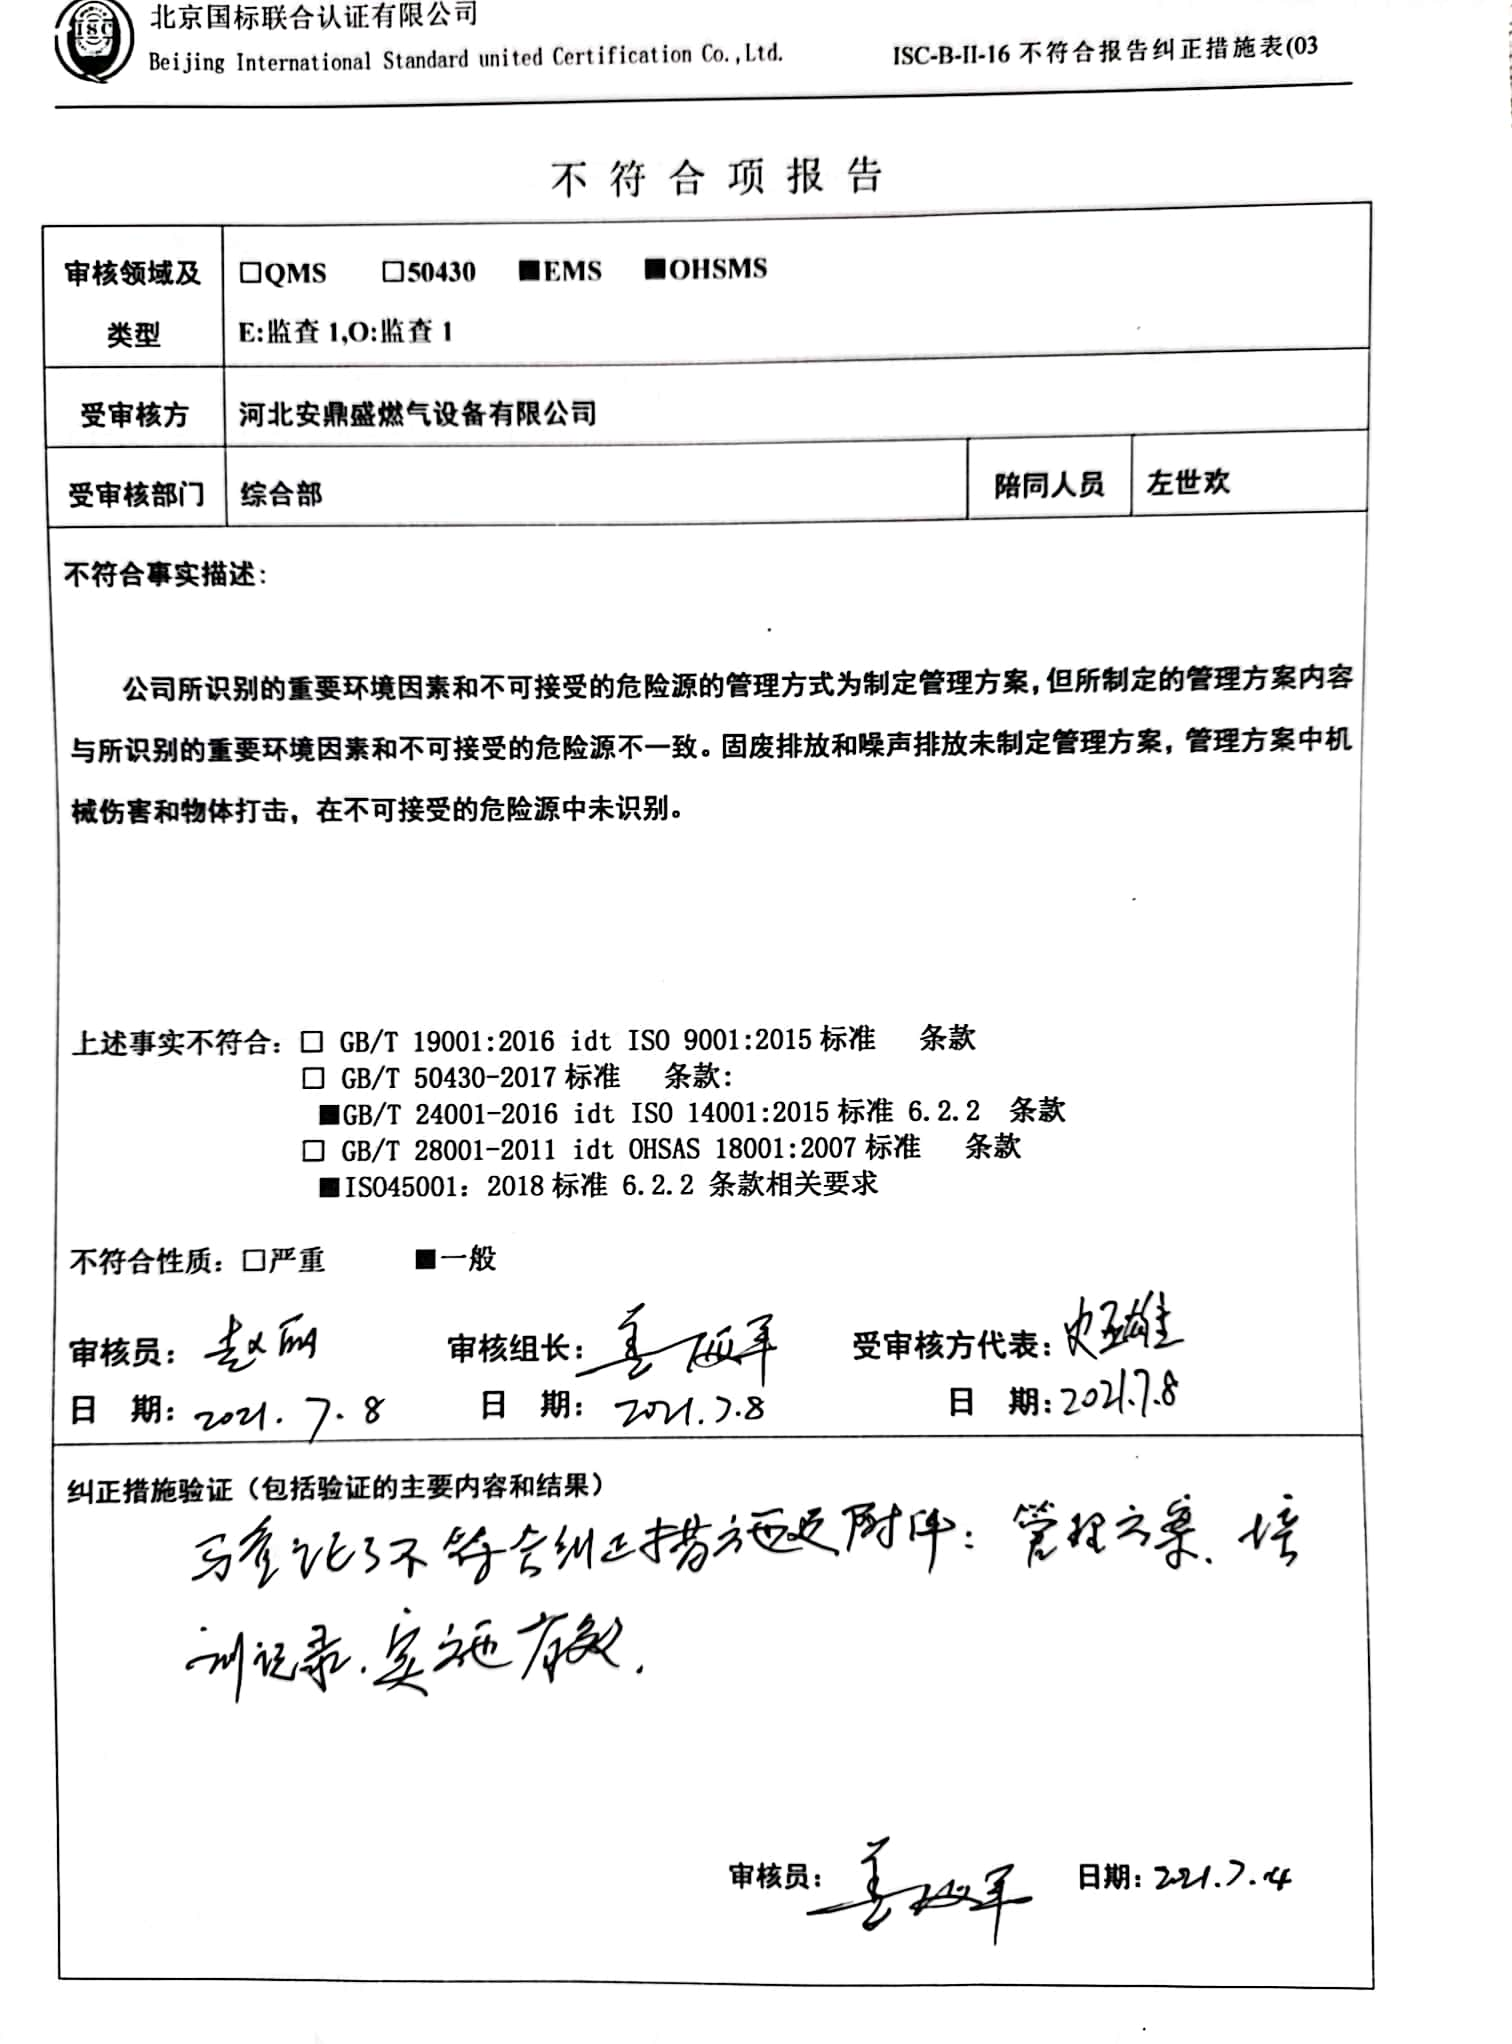 北京国标联合认证有限公司
Beijing International Standard united Certification Co.,Ltd.
ISC-B-II-16 不符合报告纠正措施表(03
ISC
不符合项报告
审核领域及类型
□QMS □50430 ■EMS ■OHSMS
E:监查 1,O:监查 1
受审核方 河北安鼎盛燃气设备有限公司
受审核部门 综合部 陪同人员 左世欢
不符合事实描述：
公司所识别的重要环境因素和不可接受的危险源的管理方式为制定管理方案，但所制定的管理方案内容
与所识别的重要环境因素和不可接受的危险源不一致。固废排放和噪声排放未制定管理方案，管理方案中机
械伤害和物体打击，在不可接受的危险源中未识别。
上述事实不符合：□ GB/T 19001:2016 idt ISO 9001:2015 标准 条款
□ GB/T 50430-2017 标准 条款：
■GB/T 24001-2016 idt ISO 14001:2015 标准 6.2.2 条款
□ GB/T 28001-2011 idt OHSAS 18001:2007 标准 条款
■ISO45001：2018 标准 6.2.2 条款相关要求
不符合性质：□严重 ■一般
审核员：赵丽 审核组长： 受审核方代表：
日 期：2021.7.8 日 期：2021.7.8 日 期：2021.7.8
纠正措施验证（包括验证的主要内容和结果）
证了不符合纠正措施及附件：管理方案、培
训记录.实施有效.
审核员： 日期：2021.7.